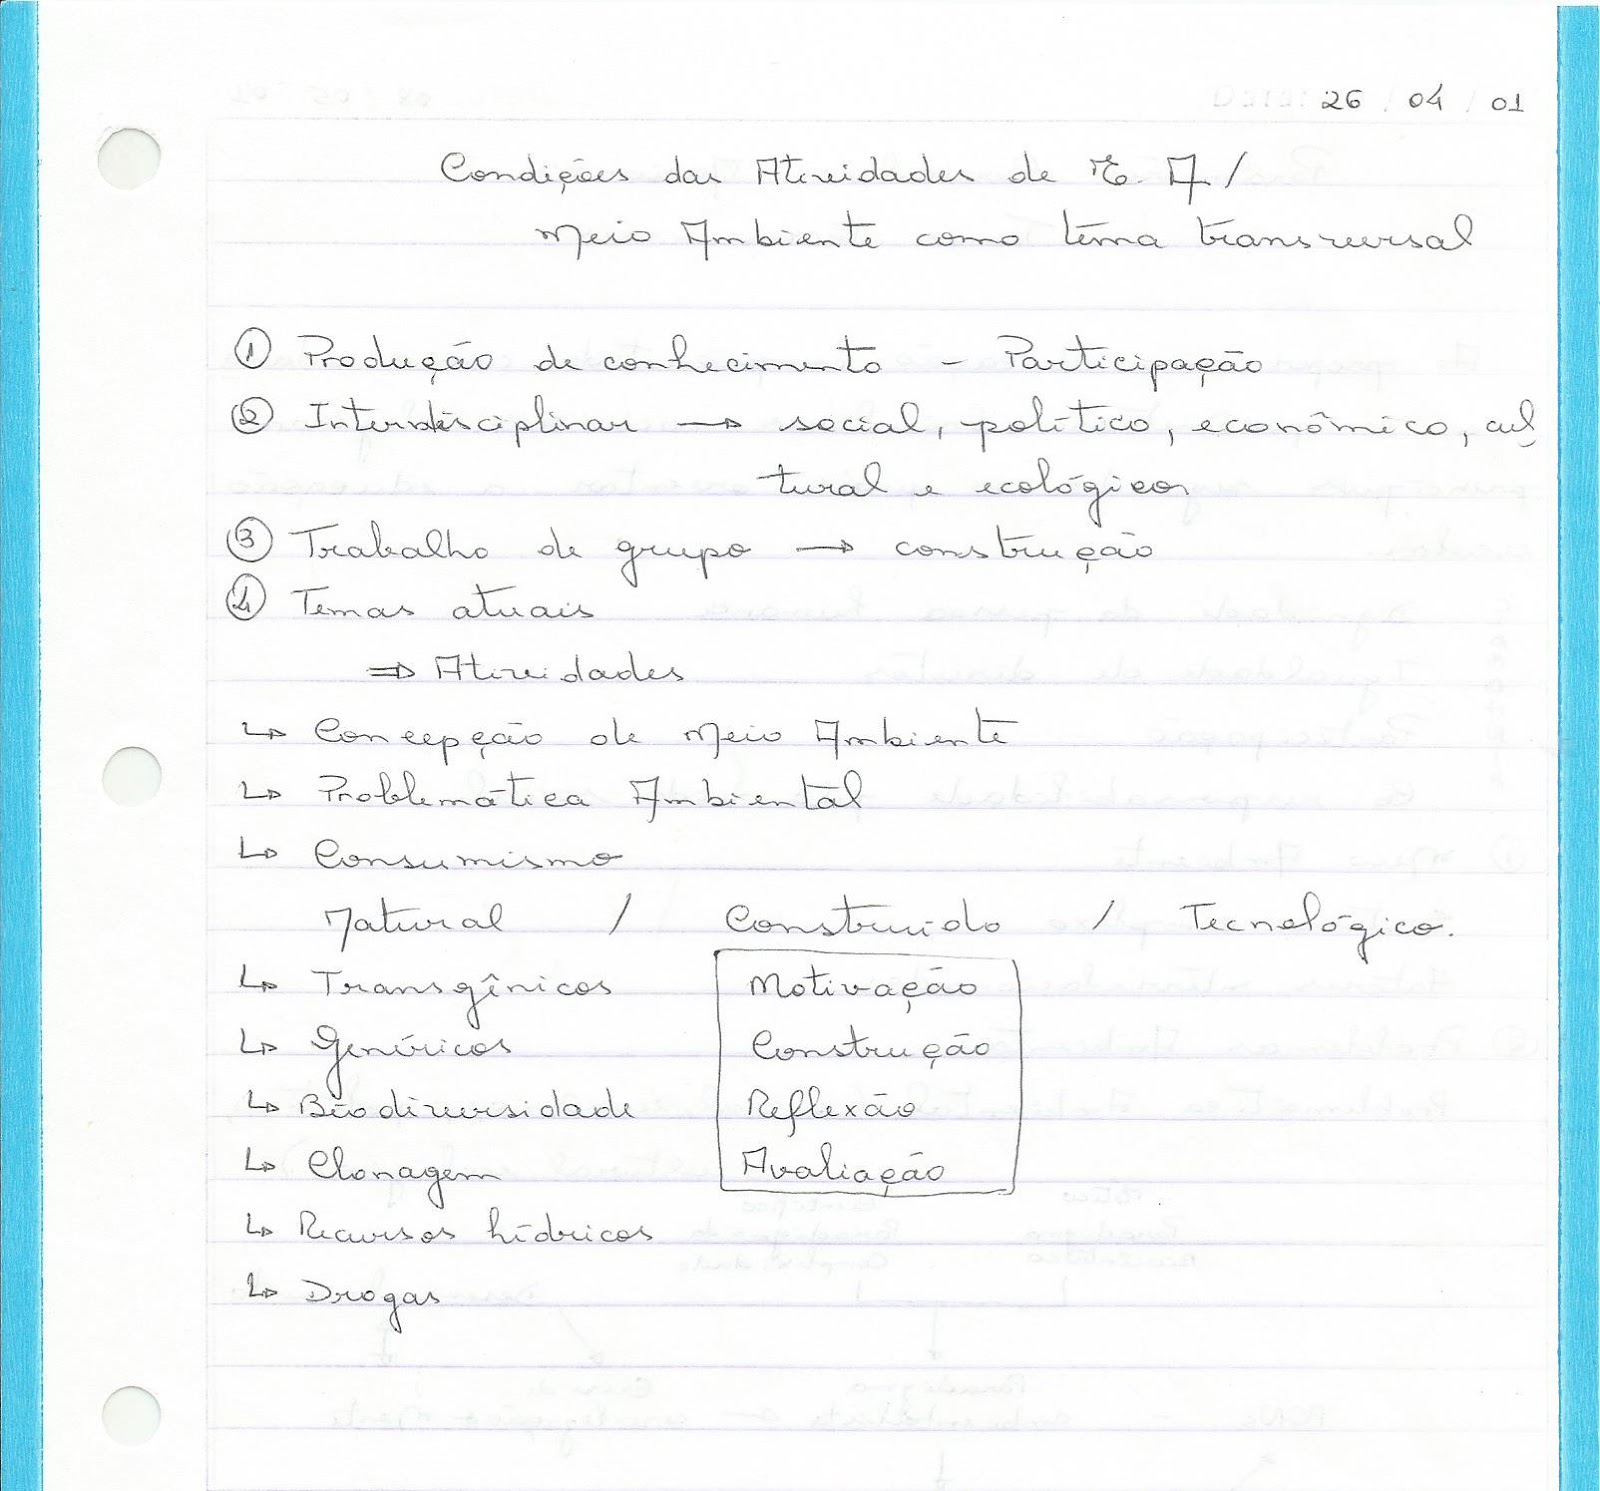 26 / 04 / 01
Condições das Atividades de E. A /
Meio Ambiente como tema transversal
① Produção de conhecimento - Participação
② Interdisciplinar → social, político, econômico, cul
tural e ecológicos
③ Trabalho de grupo → construção
④ Temas atuais
⇒ Atividades
↳ Concepção de Meio Ambiente
↳ Problemática Ambiental
↳ Consumismo
Natural / Construído / Tecnológico.
↳ Transgênicos Motivação
↳ Genéricos Construção
↳ Biodiversidade Reflexão
↳ Clonagem Avaliação
↳ Recursos hídricos
↳ Drogas